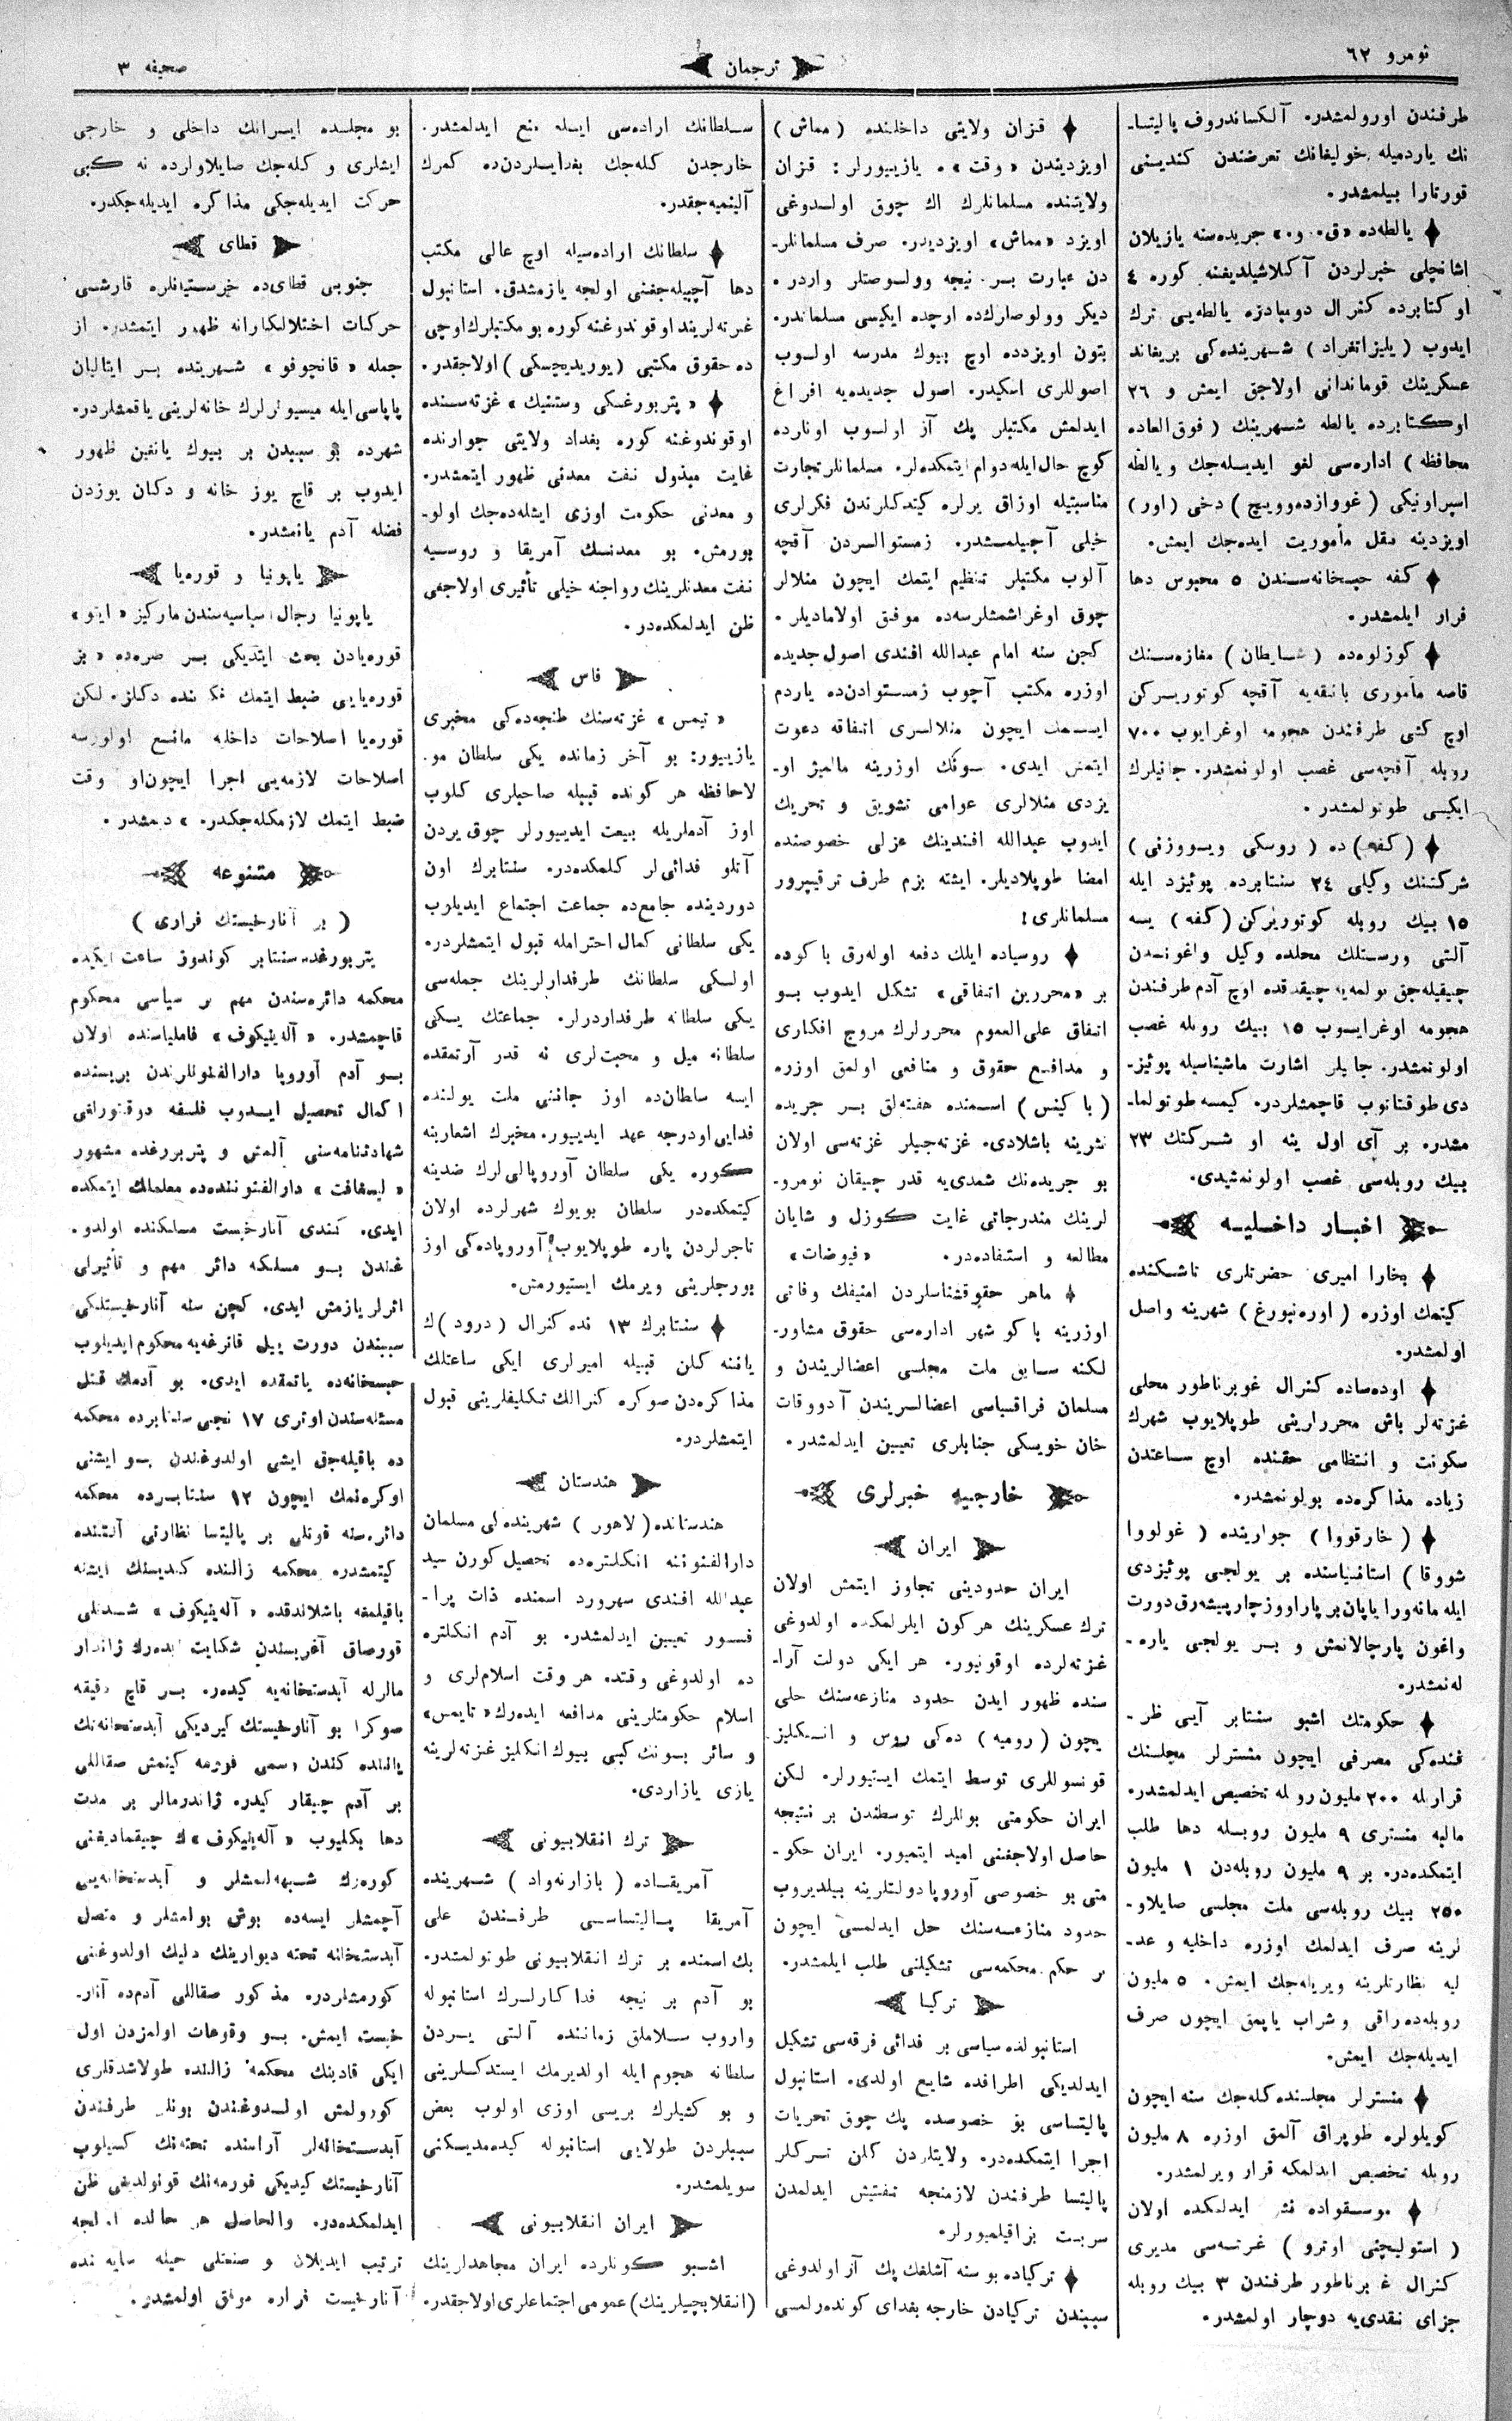 نومرو ٦٢
ترجمان
صحیفه ٣
طرفندن اورولمشدر. آلكساندروف پالیتسا-
نك یاردمیله خولیغانك تعرضندن كندیسنی
قورتارا بیلمشدر.
یالطه‌ده «ق. و.» جریده‌سنه یازیلان
اشانچلی خبرلردن آكلاشیلدیغنه كوره ٤
اوكتابرده كنرال دومبادزه یالطه‌یی ترك
ایدوب (یلیزاتغراد) شهرینده‌كی بریغاند
عسكرینك قوماندانی اولاجق ایمش و ٢٦
اوكتابرده یالطه شهرینك (فوق العاده
محافظه) اداره‌سی لغو ایدیله‌جك و یالطه
اسپراونیكی (غووازده‌وویچ) دخی (اور)
اویزدینه نقل مأموریت ایده‌جك ایمش.
كفه حبسخانه‌سندن ٥ محبوس دها
فرار ایلمشدر.
كوزلوه‌ده (شایطان) مغازه‌سنك
قاصه مأموری بانقه‌یه آقچه كوتوریركن
اوچ كشی طرفندن هجومه اوغرایوب ٧٠٠
روبله آقچه‌سی غصب اولونمشدر. جانیلرك
ایكیسی طوتولمشدر.
(كفه) ده (روسكی ویووزنی)
شركتنك وكیلی ٢٤ سنتابرده پوئیزد ایله
١٥ بیك روبله كوتوریركن (كفه) یه
آلتی ورستلك محلده وكیل واغوندن
چیقیله‌جق بولمه‌یه چیقدقده اوچ آدم طرفندن
هجومه اوغرایوب ١٥ بیك روبله غصب
اولونمشدر. جانیلر اشارت ماشیناسیله پوئیز-
دی طوقتاتوب قاچمشلردر. كیمسه طوتولما-
مشدر. بر آی اول ینه او شركتك ٢٣
بیك روبله‌سی غصب اولونمشیدی.
اخبار داخلیه
بخارا امیری حضرتلری تاشكنده
كیتمك اوزره (اوره‌نبورغ) شهرینه واصل
اولمشدر.
اوده‌ساده كنرال غوبرناطور محلی
غزته‌لر باش محررارینی طوپلایوب شهرك
سكونت و انتظامی حقنده اوچ ساعتدن
زیاده مذاكره‌ده بولونمشدر.
(خارقووا) جوارینده (غولووا
شووقا) استانسیاسنده بر یولجی پوئیزدی
ایله مانه‌ورا یاپان بر پاراووز چارپیشه‌رق دورت
واغون پارچالانمش و بر یولجی یاره-
له‌نمشدر.
حكومتك اشبو سنتابر آیی ظر-
فنده‌كی مصرفی ایچون منسترلر مجلسنك
قراریله ٢٠٠ ملیون روبله تخصیص ایدلمشدر.
مالیه منستری ٩ ملیون روبله دها طلب
ایتمكده‌در. بر ٩ ملیون روبله‌دن ١ ملیون
٢٥٠ بیك روبله‌سی ملت مجلسی صایلاو-
لرینه صرف ایدلمك اوزره داخلیه و عد-
لیه نظارتلرینه ویریله‌جك ایمش. ٥ ملیون
روبله‌ده راقی و شراب یاپمق ایچون صرف
ایدیله‌جك ایمش.
منسترلر مجلسنده كله‌جك سنه ایچون
كویلولره طوپراق آلمق اوزره ٨ ملیون
روبله تخصیص ایدلمكه قرار ویرلمشدر.
موسقواده نشر ایدلمكده اولان
(استولیچنی اوترو) غزته‌سی مدیری
كنرال غوبرناطور طرفندن ٣ بیك روبله
جزای نقدی‌یه دوچار اولمشدر.
قزان ولایتی داخلنده (مماش)
اویزدیندن «وقت» ه یازییورلر: قزان
ولایتنده مسلمانلرك اك چوق اولدوغی
اویزد «مماش» اویزدیدر. صرف مسلمانلر-
دن عبارت بر نیجه وولوصتلر واردر.
دیكر وولوصلرك‌ده اوچده ایكیسی مسلماندر.
بتون اویزدده اوچ بیوك مدرسه اولوب
اصوللری اسكیدر. اصول جدیده‌یه افراغ
ایدلمش مكتبلر پك آز اولوب اونلرده
كوچ حال ایله دوام ایتمكده‌لر. مسلمانلر تجارت
مناسبتیله اوزاق یرلره كیتدكلرندن فكرلری
خیلی آچیلمشدر. زمستوالردن آقچه
آلوب مكتبلر تنظیم ایتمك ایچون منلالر
چوق اوغراشمشلرسه‌ده موفق اولامادیلر.
كچن سنه امام عبدالله افندی اصول جدیده
اوزره مكتب آچوب زمستوادن‌ده یاردم
ایسمك ایچون منلالری اتفاقه دعوت
ایتمش ایدی. سوڭك اوزرینه مالمیژ او-
یزدی منلالری عوامی تشویق و تحریك
ایدوب عبدالله افندینك عزلی خصوصنده
امضا طوپلادیلر. ایشته بزم طرف ترقیپرور
مسلمانلری!
روسیاده ایلك دفعه اوله‌رق باكوده
بر «محررین اتفاقی» تشكل ایدوب بو
اتفاق علی العموم محررلرك مروج افكاری
و مدافع حقوق و منافعی اولمق اوزره
(باكینس) اسمنده هفته‌لق بر جریده
نشرینه باشلادی. غزته‌جیلر غزته‌سی اولان
بو جریده‌نك شمدی‌یه قدر چیقان نومرو-
لرینك مندرجاتی غایت كوزل و شایان
مطالعه و استفاده‌در. «فیوضات»
ماهر حقوقشناسلردن امنیفك وفاتی
اوزرینه باكو شهر اداره‌سی حقوق مشاور-
لكنه سابق ملت مجلسی اعضالریندن و
مسلمان فراقسیاسی اعضالریندن آدووقات
خان خویسكی جنابلری تعیین ایدلمشدر.
خارجیه خبرلری
ایران
ایران حدودینی تجاوز ایتمش اولان
ترك عسكرینك هركون ایلرلمكده اولدوغی
غزته‌لرده اوقونیور. هر ایكی دولت آرا-
سنده ظهور ایدن حدود منازعه‌سنك حلی
یچون (رومیه) ده‌كی روس و انكلیز
قونسوللری توسط ایتمك ایستیورلر. لكن
ایران حكومتی بونلرك توسطندن بر نتیجه
حاصل اولاجغنی امید ایتمیور. ایران حكو-
متی بو خصوصی آوروپا دولتلرینه بیلدیروب
حدود منازعه‌سنك حل ایدلمسی ایچون
بر حكم محكمه‌سی تشكیلنی طلب ایلمشدر.
تركیا
استانبولده سیاسی بر فدائی فرقه‌سی تشكیل
ایدلدیكی اطرافده شایع اولدی. استانبول
پالیتساسی بو خصوصده پك چوق تحریات
اجرا ایتمكده‌در. ولایتلردن كلن تركلر
پالیتسا طرفندن لازمنجه تفتیش ایدلمدن
سربست براقیلمیورلر.
تركیاده بو سنه آشلقك پك آز اولدوغی
سببندن تركیادن خارجه بغدای كونده‌رلمسی
سلطانك اراده‌سی ایله منع ایدلمشدر.
خارجدن كله‌جك بغدایلردن‌ده كمرك
آلینمیه‌جقدر.
سلطانك اراده‌سیله اوچ عالی مكتب
دها آچیله‌جغنی اولجه یازمشدق. استانبول
غزته‌لرینده اوقوندوغنه كوره بو مكتبلرك اوچی
ده حقوق مكتبی (یوریدیچسكی) اولاجقدر.
«پتربورغسكی وستنیك» غزته‌سنده
اوقوندوغنه كوره بغداد ولایتی جوارنده
غایت مبذول نفت معدنی ظهور ایتمشدر.
و معدنی حكومت اوزی ایشله‌ده‌جك اولو-
یورمش. بو معدنك آمریقا و روسیه
نفت معدنلرینك رواجنه خیلی تأثیری اولاجغی
ظن ایدلمكده‌در.
فاس
«تیمس» غزته‌سنك طنجه‌ده‌كی مخبری
یازییور: بو آخر زمانده یكی سلطان مو-
لاحافظه هر كونده قبیله صاحبلری كلوب
اوز آدملریله بیعت ایدییورلر چوق یردن
آتلو فدائی‌لر كلمكده‌در. سنتابرك اون
دوردینده جامع‌ده جماعت اجتماع ایدیلوب
یكی سلطانی كمال احترامله قبول ایتمشلردر.
اولكی سلطانك طرفدارلرینك جمله‌سی
یكی سلطانه طرفداردرلر. جماعتك یكی
سلطانه میل و محبت‌لری نه قدر آرتمقده
ایسه سلطان‌ده اوز جاننی ملت یولنده
فدایی اودرجه عهد ایدییور. مخبرك اشعارینه
كوره یكی سلطان آوروپالی‌لرك ضدینه
كیتمكده‌در سلطان بویوك شهرلرده اولان
تاجرلردن پاره طوپلایوب آوروپاده‌كی اوز
بورجلرینی ویرمك ایستیورمش.
سنتابرك ١٣ نده كنرال (درود) ك
یاننه كلن قبیله امیرلری ایكی ساعتلك
مذاكره‌دن صوكره كنرالك تكلیفلرینی قبول
ایتمشلردر.
هندستان
هندستانده (لاهور) شهرینده‌كی مسلمان
دارالفنوننه انكلتره‌ده تحصیل كورن سید
عبدالله افندی سهرورد اسمنده ذات پرا-
فسور تعیین ایدلمشدر. بو آدم انكلتره
ده اولدوغی وقتده هر وقت اسلام‌لری و
اسلام حكومتلرینی مدافعه ایده‌رك «تایمس»
و سائر بونك كبی بیوك انكلیز غزته‌لرینه
یازی یازاردی.
ترك انقلابیونی
آمریقاده (بازارنه‌واد) شهرینده
آمریقا پالیتساسی طرفندن علی
بك اسمنده بر ترك انقلابیونی طوتولمشدر.
بو آدم بر نیجه فداكارلرك استانبوله
واروب سلاملق زماننده آلتی یردن
سلطانه هجوم ایله اولدیرمك ایستدكلرینی
و بو كشیلرك بریسی اوزی اولوب بعض
سببلردن طولایی استانبوله كیده‌مدیكنی
سویلمشدر.
ایران انقلابیونی
اشبو كونلرده ایران مجاهدلرینك
(انقلابچیلرینك) عمومی اجتماعلری اولاجقدر.
بو مجلسده ایرانك داخلی و خارجی
ایشلری و كله‌جك صایلاولرده نه كبی
حركت ایدیله‌جكی مذاكره ایدیله‌جكدر.
قطای
جنوبی قطای‌ده خرستیانلره قارشی
حركات اختلالكارانه ظهور ایتمشدر. از
جمله «قانچوفو» شهرینده بر ایتالیان
پاپاسی ایله میسیونرلرك خانه‌لرینی یاقمشلردر.
شهرده بو سببدن بر بیوك یانغین ظهور
ایدوب بر قاچ یوز خانه و دكان یوزدن
فضله آدم یانمشدر.
یاپونیا و قوره‌یا
یاپونیا رجال سیاسیه‌سندن ماركیز «ایتو»
قوره‌یادن بحث ایتدیكی بر صره‌ده «بز
قوره‌یایی ضبط ایتمك فكرنده دكلز. لكن
قوره‌یا اصلاحات داخلیه مانع اولورسه
اصلاحات لازمه‌یی اجرا ایچون او وقت
ضبط ایتمك لازمكله‌جكدر.» دیمشدر.
متنوعه
(بر آنارخیستك فراری)
پتربورغده سنتابر كوندوز ساعت ایكیده
محكمه دائره‌سندن مهم بر سیاسی محكوم
قاچمشدر. «آله‌ینیكوف» فاملیاسنده اولان
بو آدم آوروپا دارالفنونلرندن بریسنده
اكمال تحصیل ایدوب فلسفه دوقتورلغی
شهادتنامه‌سنی آلمش و پتربورغده مشهور
«لیسغافت» دارالفنوننده‌ده معلملك ایتمكده
ایدی. كندی آنارخیست مسلكنده اولدو-
غندن بو مسلكه دائر مهم و تأثیرلی
اثرلر یازمش ایدی. كچن سنه آنارخیستلكی
سببندن دورت ییل قاترغه‌یه محكوم ایدیلوب
حبسخانه‌ده یاتمقده ایدی. بو آدمك قتل
مسئله‌سندن اوتری ١٧ نجی سنتابرده محكمه
ده باقیله‌جق ایشی اولدوغندن بو ایشنی
اوكره‌نمك ایچون ١٢ سنتابرده محكمه
دائره‌سنه قونلی بر پالیتسا نظارتی آلتنده
كیتمشدر. محكمه زالنده كندیسنك ایشنه
باقیلمغه باشلاندقده «آله‌ینیكوف» شدتلی
قورصاق آغریسندن شكایت ایده‌رك ژاندار
مالرله آبدستخانه‌یه كیدر. بر قاچ دقیقه
صوكرا بو آنارخیستك كیردیكی آبدستخانه‌نك
یاننده كندن رسمی فورمه كینمش صقاللی
بر آدم چیقار كیدر. ژاندرمالر بر مدت
دها بكلیوب «آله‌ینیكوف» ك چیقمادیغنی
كوره‌رك شبهه‌لنمشلر و آبدستخانه‌یی
آچمشلر ایسه‌ده بوش بولمشلر و متصل
آبدستخانه تخته دیوارینك دلیك اولدوغنی
كورمشلردر. مذكور صقاللی آدم‌ده آنار-
خیست ایمش. بو وقوعات اولمزدن اول
ایكی قادینك محكمه زالنده طولاشدقلری
كورولمش اولدوغندن بونلر طرفندن
آبدستخانه‌لر آراسنده تخته‌نك كسیلوب
آنارخیستك كیدیكی فورمه‌نك قونولدیغی ظن
ایدلمكده‌در. والحاصل هر حالده اولجه
ترتیب ایدیلان و صنعتلی حیله سایه‌سنده
آنارخیست فراره موفق اولمشدر.